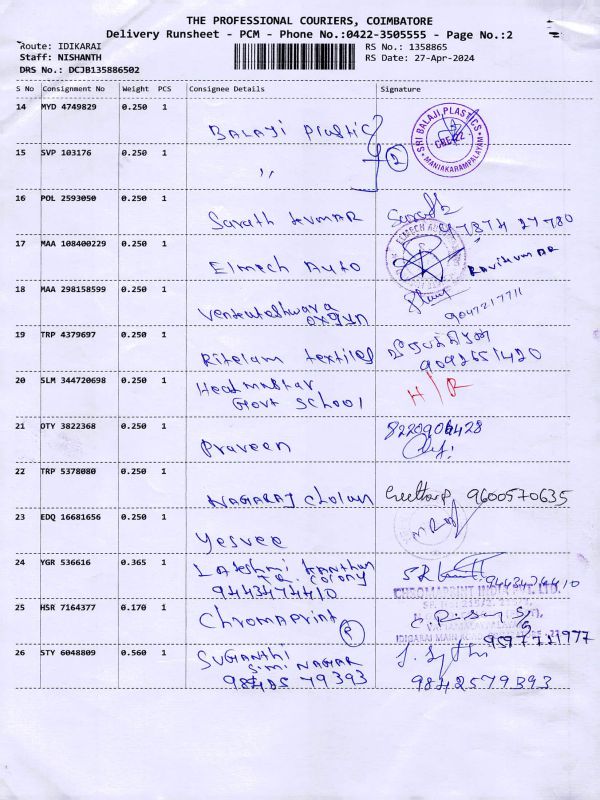 THE PROFESSIONAL COURIERS, COIMBATORE
Delivery Runsheet - PCM - Phone No.:0422-3505555 - Page No.:2
Route: IDIKARAI
RS No.: 1358865
Staff: NISHANTH
RS Date: 27-Apr-2024
DRS No.: DCJB135886502
S No Consignment No Weight PCS Consignee Details Signature
14 MYD 4749829 0.250 1 Balaji Plastic
SRI BALAJI PLASTICS MANIAKARAMPALAYAM
15 SVP 103176 0.250 1 " 2
16 POL 2593050 0.250 1 Sarath Kumar
97874 27780
17 MAA 108400229 0.250 1 Elmech Auto Ravikumar
18 MAA 298158599 0.250 1 Venkateshwara
oxgyn 9047217711
19 TRP 4379697 0.250 1 Ritelam textiles
9092651420
20 SLM 344720698 0.250 1
Govt School H/R
21 OTY 3822368 0.250 1 Praveen
22 TRP 5378080 0.250 1 NAGARAJ 9600570635
23 EDQ 16681656 0.250 1 Yesvee
24 YGR 536616 0.365 1 Lakshmi Kanthan
Colony
9443474410 9443474410
25 HSR 7164377 0.170 1 Chromaprint
CHROMAPRINT INDIA PVT. LTD.
9597771977
26 STY 6048809 0.560 1 Suganthi
NAGAR
98425 79393 9842579393